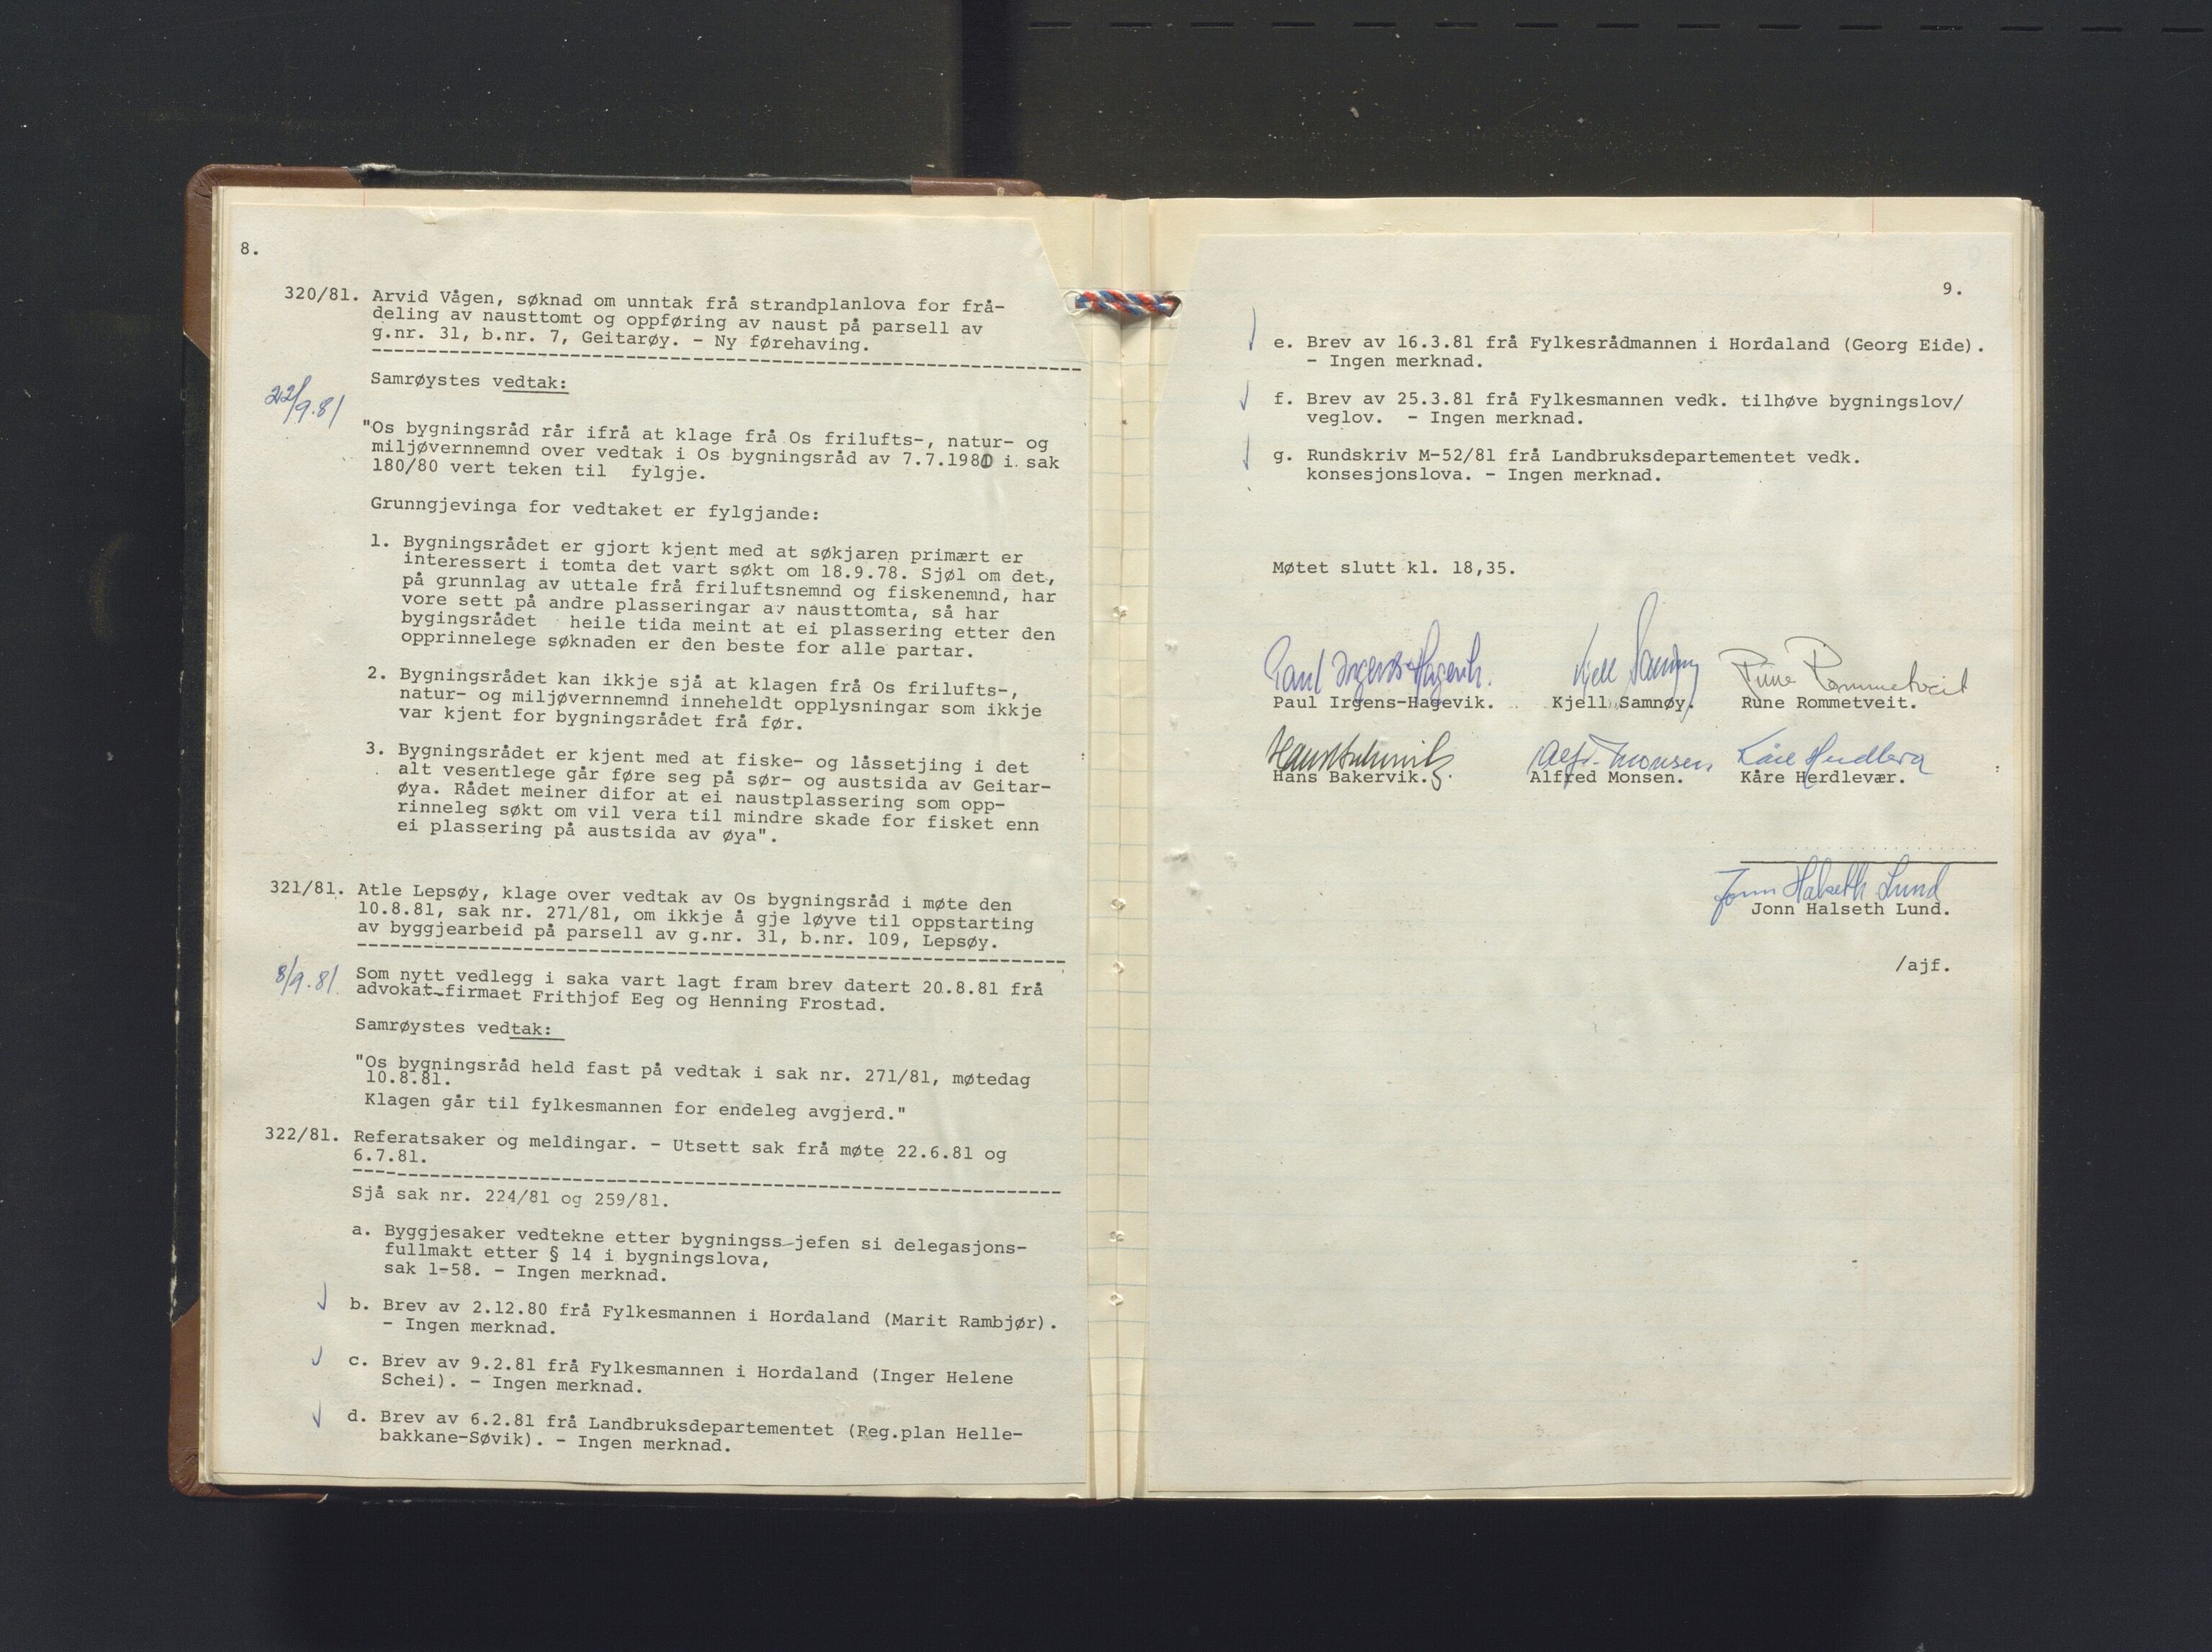 8.
320/81. Arvid Vågen, søknad om unntak frå strandplanlova for frå-
deling av nausttomt og oppføring av naust på parsell av
g.nr. 31, b.nr. 7, Geitarøy. - Ny førehaving.
Samrøystes vedtak:
22/9.81
"Os bygningsråd rår ifrå at klage frå Os frilufts-, natur- og
miljøvernnemnd over vedtak i Os bygningsråd av 7.7.1980 i sak
180/80 vert teken til fylgje.
Grunngjevinga for vedtaket er fylgjande:
1. Bygningsrådet er gjort kjent med at søkjaren primært er
interessert i tomta det vart søkt om 18.9.78. Sjøl om det,
på grunnlag av uttale frå friluftsnemnd og fiskenemnd, har
vore sett på andre plasseringar av nausttomta, så har
bygingsrådet heile tida meint at ei plassering etter den
opprinnelege søknaden er den beste for alle partar.
2. Bygningsrådet kan ikkje sjå at klagen frå Os frilufts-,
natur- og miljøvernnemnd inneheldt opplysningar som ikkje
var kjent for bygningsrådet frå før.
3. Bygningsrådet er kjent med at fiske- og låssetjing i det
alt vesentlege går føre seg på sør- og austsida av Geitar-
øya. Rådet meiner difor at ei naustplassering som opp-
rinneleg søkt om vil vera til mindre skade for fisket enn
ei plassering på austsida av øya".
321/81. Atle Lepsøy, klage over vedtak av Os bygningsråd i møte den
10.8.81, sak nr. 271/81, om ikkje å gje løyve til oppstarting
av byggjearbeid på parsell av g.nr. 31, b.nr. 109, Lepsøy.
8/9.81. Som nytt vedlegg i saka vart lagt fram brev datert 20.8.81 frå
advokat-firmaet Frithjof Eeg og Henning Frostad.
Samrøystes vedtak:
"Os bygningsråd held fast på vedtak i sak nr. 271/81, møtedag
10.8.81.
Klagen går til fylkesmannen for endeleg avgjerd."
322/81. Referatsaker og meldingar. - Utsett sak frå møte 22.6.81 og
6.7.81.
Sjå sak nr. 224/81 og 259/81.
a. Byggjesaker vedtekne etter bygningss-jefen si delegasjons-
fullmakt etter § 14 i bygningslova,
sak 1-58. - Ingen merknad.
b. Brev av 2.12.80 frå Fylkesmannen i Hordaland (Marit Rambjør).
- Ingen merknad.
c. Brev av 9.2.81 frå Fylkesmannen i Hordaland (Inger Helene
Schei). - Ingen merknad.
d. Brev av 6.2.81 frå Landbruksdepartementet (Reg.plan Helle-
bakkane-Søvik). - Ingen merknad.
9.
e. Brev av 16.3.81 frå Fylkesrådmannen i Hordaland (Georg Eide).
- Ingen merknad.
f. Brev av 25.3.81 frå Fylkesmannen vedk. tilhøve bygningslov/
veglov. - Ingen merknad.
g. Rundskriv M-52/81 frå Landbruksdepartementet vedk.
konsesjonslova. - Ingen merknad.
Møtet slutt kl. 18,35.
Paul Irgens-Hagevik. Kjell Samnøy Rune Rommetveit
Paul Irgens-Hagevik. Kjell Samnøy. Rune Rommetveit.
Hans Bakervik Alfr. Monsen Kåre Herdlevær
Hans Bakervik. Alfred Monsen. Kåre Herdlevær.
Jonn Halseth Lund
Jonn Halseth Lund.
/ajf.